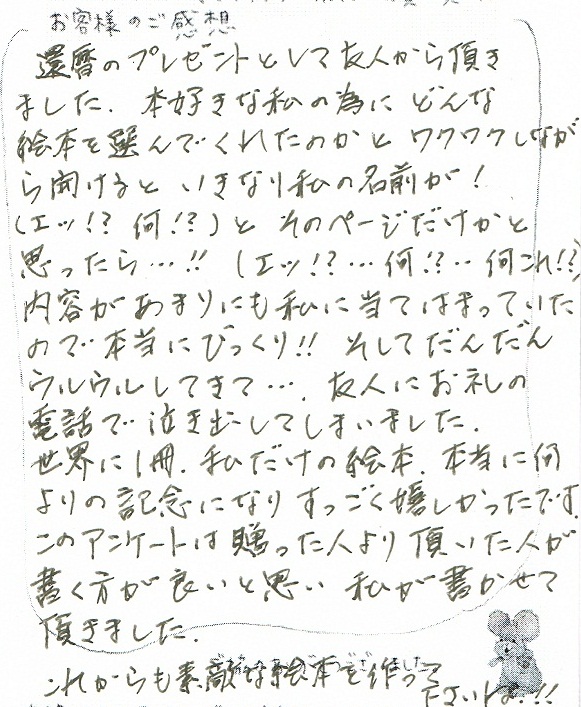 お客様のご感想
還暦のプレゼントとして友人から頂き
ました. 本好きな私の為に どんな
絵本を選んでくれたのかと ワクワクしなが
ら開けると いきなり私の名前が!
(エッ!? 何!?)と そのページだけかと
思ったら…!! (エッ!?…何!?‥何これ!?)
内容があまりにも私に当てはまっていた
ので本当にびっくり!! そしてだんだん
ウルウルしてきて…. 友人にお礼の
電話で泣き出してしまいました.
世界に1冊. 私だけの絵本. 本当に何
よりの記念になり すっごく嬉しかったです.
このアンケートは贈った人より頂いた人が
書く方が良いと思い 私が書かせて
頂きました.
これからも素敵な絵本を作って
下さいね.!!